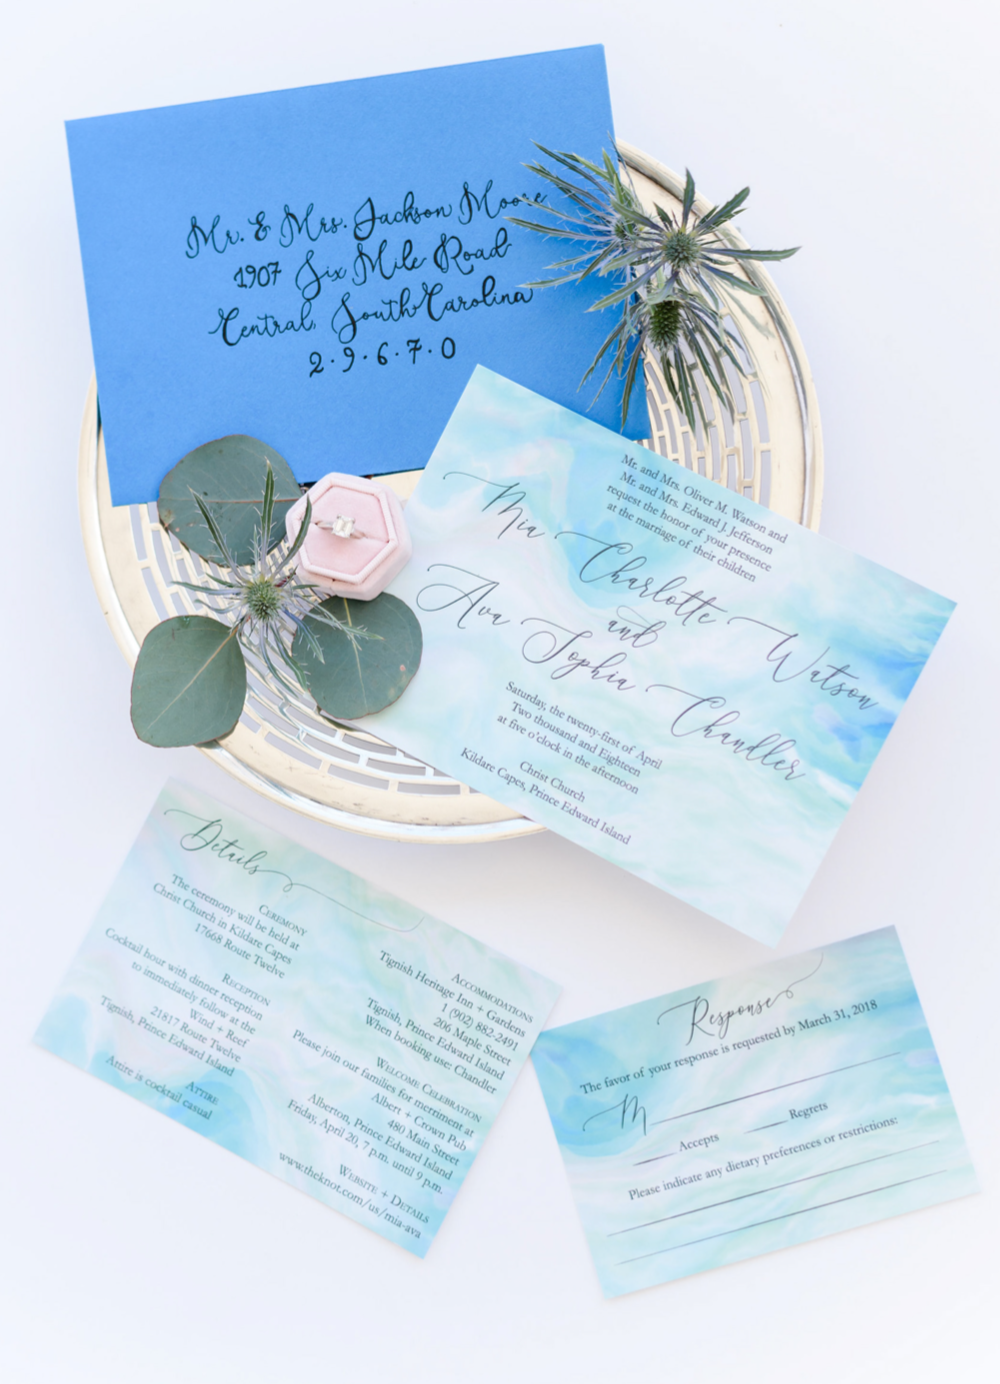 Mr. & Mrs. Jackson Moore
1907 Six Mile Road
Central, South Carolina
2·9·6·7·0
Mr. and Mrs. Oliver M. Watson and
Mr. and Mrs. Edward J. Jefferson
request the honor of your presence
at the marriage of their children
Mia Charlotte Watson
and
Ava Sophia Chandler
Saturday, the twenty-first of April
Two thousand and Eighteen
at five o'clock in the afternoon
Christ Church
Kildare Capes, Prince Edward Island
Details
CEREMONY
The ceremony will be held at
Christ Church in Kildare Capes
17668 Route Twelve
RECEPTION
Cocktail hour with dinner reception
to immediately follow at the
Wind + Reef
21817 Route Twelve
Tignish, Prince Edward Island
ATTIRE
Attire is cocktail casual
ACCOMMODATIONS
Tignish Heritage Inn + Gardens
1 (902) 882-2491
206 Maple Street
Tignish, Prince Edward Island
When booking use: Chandler
WELCOME CELEBRATION
Please join our families for merriment at
Albert + Crown Pub
480 Main Street
Alberton, Prince Edward Island
Friday, April 20, 7 p.m. until 9 p.m.
WEBSITE + DETAILS
www.theknot.com/us/mia-ava
Response
The favor of your response is requested by March 31, 2018
M
Accepts Regrets
Please indicate any dietary preferences or restrictions: